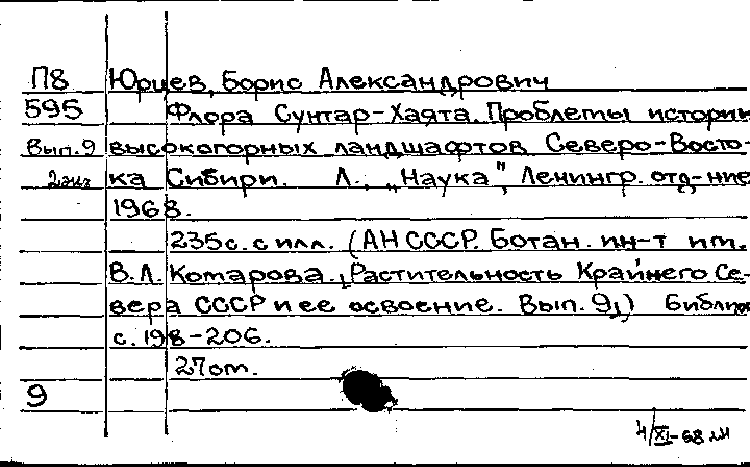 П8 Юрцев, Борис Александрович
595 Флора Сунтар-Хаята. Проблемы истории
Вып.9 высокогорных ландшафтов Северо-Восто-
2экз ка Сибири. Л., „Наука", Ленингр. отд-ние
1968.
235с. с илл. (АН СССР. Ботан. ин-т им.
В.Л. Комарова. „Растительность Крайнего Се-
вера СССР и ее освоение. Вып. 9„) Библи
с. 198-206.
27от.
9
4/XI-68